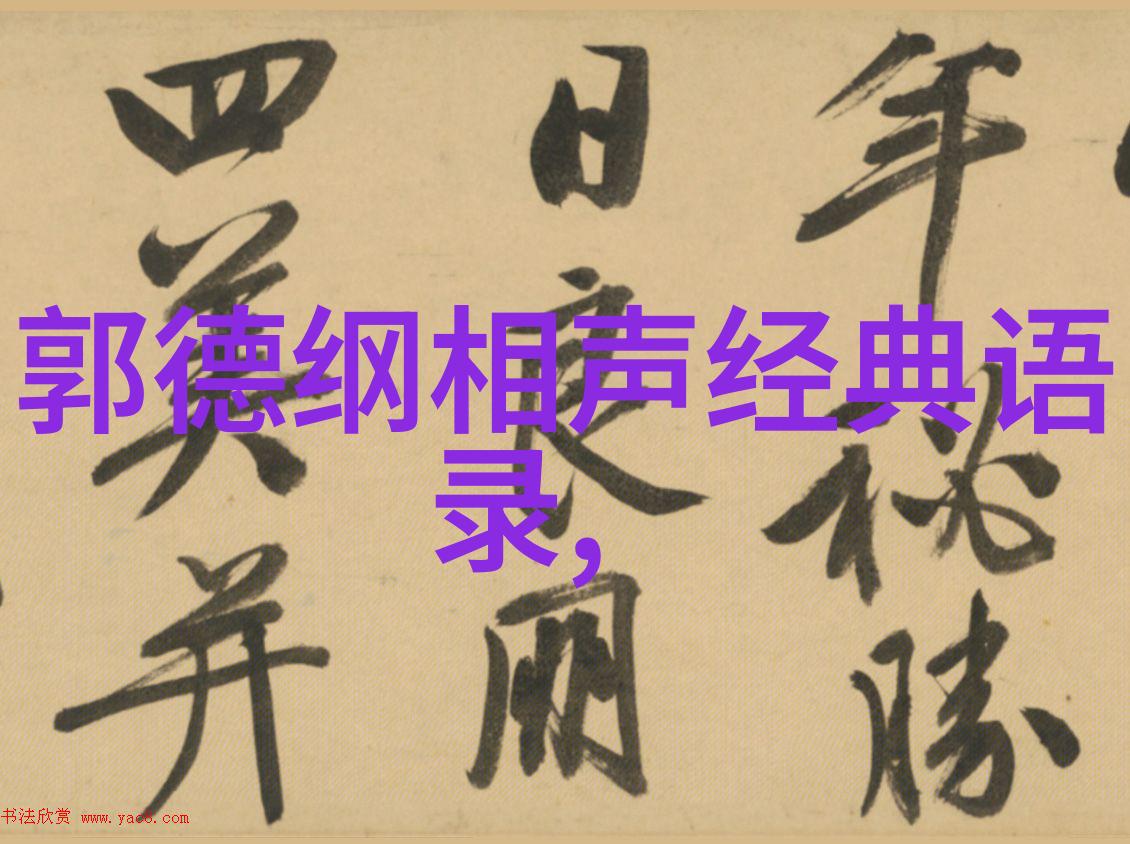 年秘勝
日良朋
四美并
郭德纲相声经典语
录,
书法欣赏 www.yac8.com